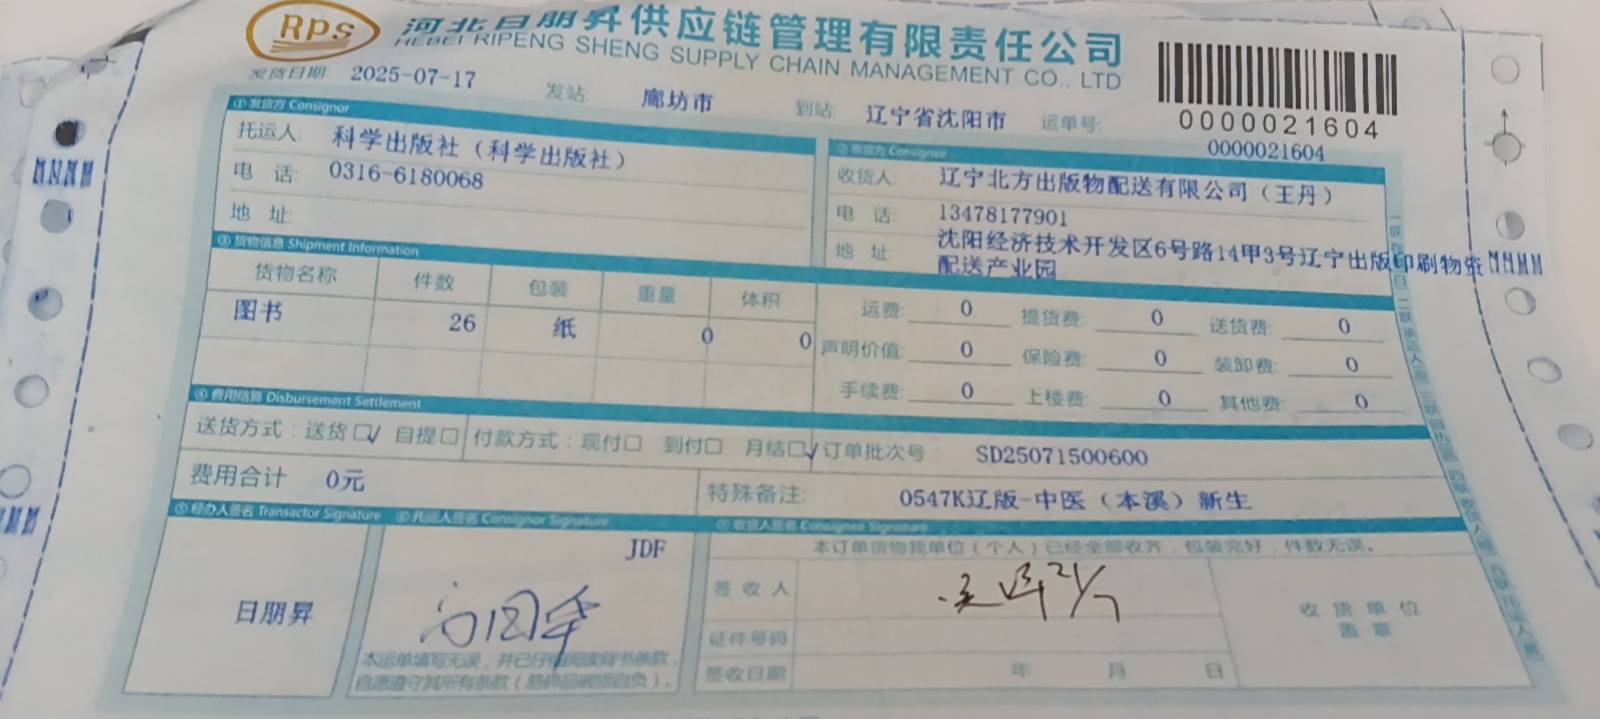 RPS
河北日朋昇供应链管理有限责任公司
HEBEI RIPENG SHENG SUPPLY CHAIN MANAGEMENT CO., LTD
发货日期: 2025-07-17 发站: 廊坊市 到站: 辽宁省沈阳市 运单号:
0000021604
0000021604
① 发货方 Consignor
托运人: 科学出版社（科学出版社）
电 话: 0316-6180068
地 址:
② 收货方 Consignee
收货人: 辽宁北方出版物配送有限公司（王丹）
电 话: 13478177901
地 址: 沈阳经济技术开发区6号路14甲3号辽宁出版印刷物资
配送产业园
③ 货物信息 Shipment Information
货物名称 件数 包装 重量 体积
图书 26 纸 0 0
运费: 0 提货费: 0 送货费: 0
声明价值: 0 保险费: 0 装卸费: 0
手续费: 0 上楼费: 0 其他费: 0
④ 费用结算 Disbursement Settlement
送货方式：送货□√ 自提□ 付款方式：现付□ 到付□ 月结□√ 订单批次号： SD25071500600
费用合计 0元 特殊备注: 0547K辽版-中医（本溪）新生
⑤ 经办人签名 Transactor Signature ⑥ 托运人签名 Consignor Signature ⑦ 收货人签名 Consignee Signature
日朋昇
JDF
本运单填写无误，并已仔细阅读背书条款，
自愿遵守其所有条款（易碎品破损自负）。
本订单货物我单位（个人）已经全部收齐，包装完好，件数无误。
签收人 21/7
证件号码
签收日期 年 月 日
收货单位
盖章